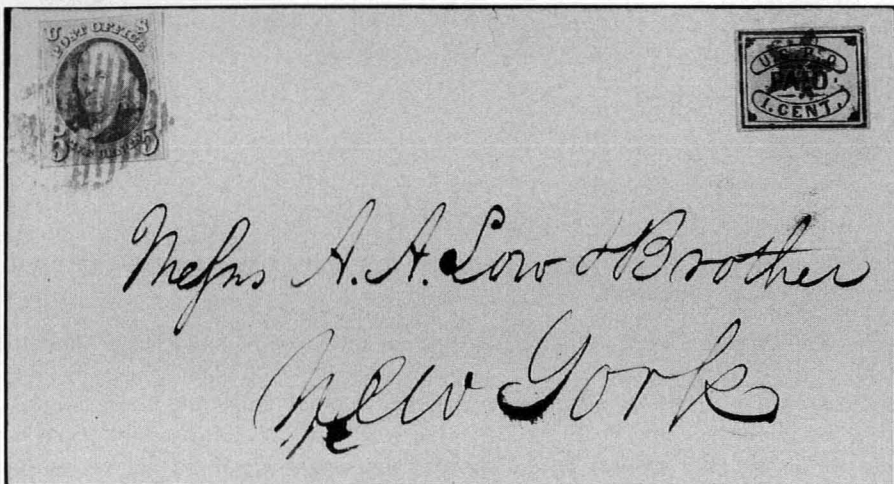 U S
POST OFFICE
5 FIVE CENTS 5
U.S.P.O.
PAID
1. CENT.
Messrs A. A. Low & Brother
New York